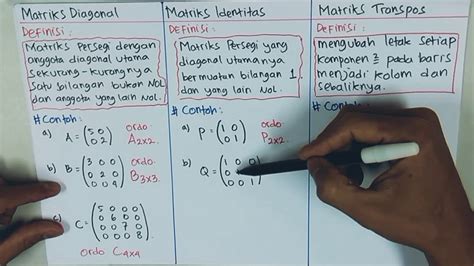 Matriks Diagonal
Definisi :
Matriks Persegi dengan
anggota diagonal utama
sekurang-kurangnya
satu bilangan bukan NOL
dan anggota yang lain Nol.
# Contoh :
a) A = (5 0) ordo
(0 2) A2x2.
b) B = (3 0 0) ordo
(0 2 0) B3x3.
(0 0 9)
c) C = (5 0 0 0)
(0 6 0 0)
(0 0 7 0)
(0 0 0 8)
ordo C4x4
Matriks Identitas
Definisi :
Matriks Persegi yang
diagonal utamanya
bermuatan bilangan 1.
dan yang lain Nol.
# Contoh :
a) P = (1 0) ordo
(0 1) P2x2.
b) Q = (1 0 0)
(0
(0 0 1)
Matriks Transpos
Definisi :
mengubah letak setiap
komponen ² pada baris
menjadi kolom dan
sebaliknya.
# Contoh